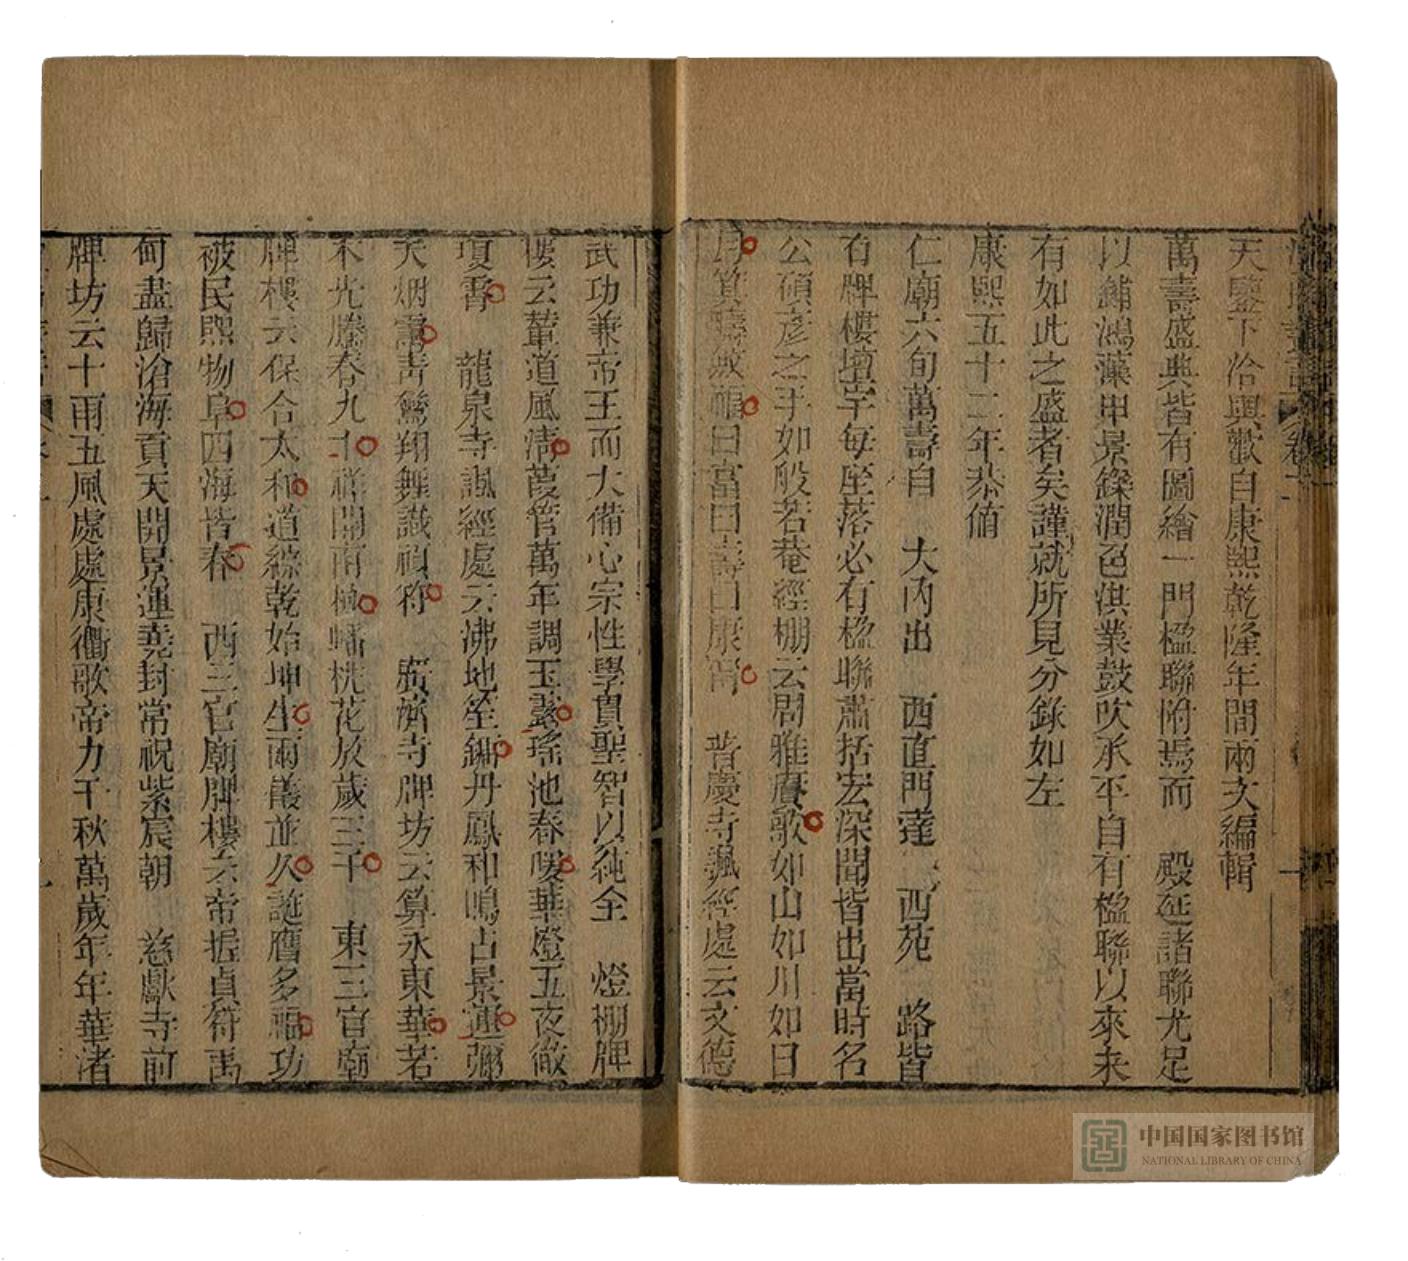 天鑒下洽輿歡自康熙乾隆年間兩次編輯
萬壽盛典皆有圖繪一門楹聯附焉而 殿廷諸聯尤足
以鋪鴻藻申景鑠潤色洪業鼓吹承平自有楹聯以來未
有如此之盛者矣謹就所見分錄如左
康熙五十二年恭値
仁廟六旬萬壽自 大內出 西直門達 西苑 路皆
有牌樓壇宇每座落必有楹聯肅括宏深聞皆出當時名
公碩彥之手如般若菴經棚云周雅賡歌如山如川如日
月箕疇斂福曰富曰壽曰康甯 普慶寺諷經處云文德
武功兼帝王而大備心宗性學貫聖智以純全 燈棚牌
樓云輦道風淸葭管萬年調玉燭瑤池春暖華燈五夜徹
瓊霄 龍泉寺諷經處云沸地笙鏞丹鳳和鳴占景運彌
天烟靄靑鸞翔舞識禎符 廣濟寺牌坊云算永東華若
木光騰春九十祥開南極蟠桃花放歲三千 東三官廟
牌樓云保合太和道綜乾始坤生兩儀並久誕膺多福功
被民熙物阜四海皆春 西三官廟牌樓云帝握貞符禹
甸盡歸滄海貢天開景運堯封常祝紫宸朝 慈獻寺前
牌坊云十雨五風處處康衢歌帝力千秋萬歲年年華渚
中国国家图书馆
NATIONAL LIBRARY OF CHINA